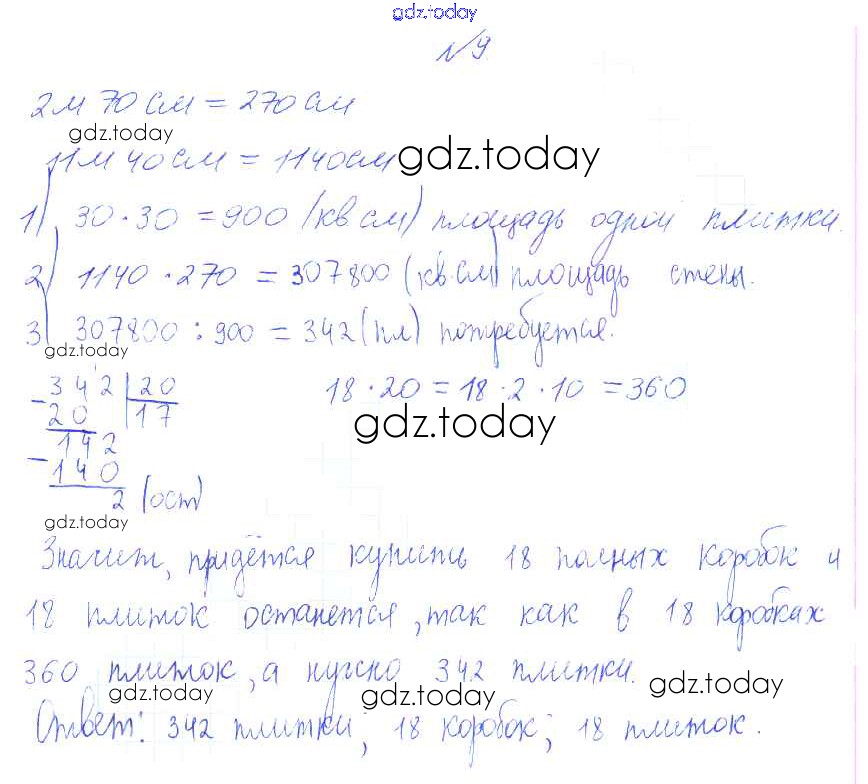 gdz.today
№9
2м 70 см = 270 см
gdz.today
11м 40 см = 1140 см gdz.today
1) 30 · 30 = 900 (кв.см) площадь одной плитки.
2) 1140 · 270 = 307800 (кв.см) площадь стены.
3) 307800 : 900 = 342 (пл) потребуется.
gdz.today
342 | 20
- 20 | 17
142
- 140
2 (ост)
18 · 20 = 18 · 2 · 10 = 360
gdz.today
gdz.today
Значит, придётся купить 18 полных коробок и
18 плиток останется, так как в 18 коробках
360 плиток, а нужно 342 плитки.
gdz.today gdz.today gdz.today
Ответ: 342 плитки; 18 коробок; 18 плиток.